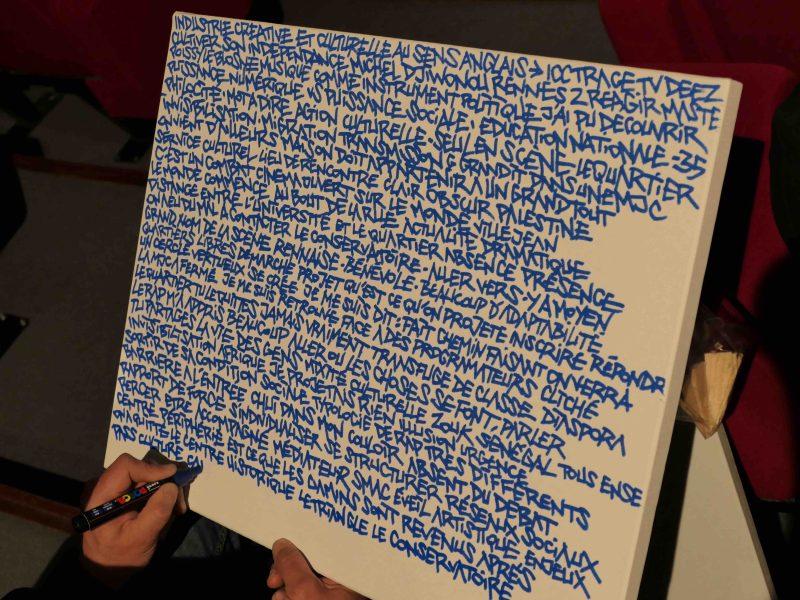 INDUSTRIE CRÉATIVE ET CULTURELLE AU SENS ANGLAIS > ICC TRACE.TV DEEZ
CULTIVER SON INDÉPENDANCE MICHEL DJIWONOU RENNES 2 RÉAGIR MISTE
MUSIQUE COMME INSTRUMENT POLITIQUE J'AI PU DÉCOUVRIR
PUISSANCE NUMÉRIQUE VS PUISSANCE SOCIALE. ÉDUCATION NATIONALE - 35
PHILO CITÉ MOT À DIRE ACTION CULTURELLE - SEUL EN SCÈNE - LE QUARTIER
INVISIBILISATION MIGRATION TRANSMISSION GRANDIT DANS UNE MJC
VIENT D'AILLEURS MAIS ON DOIT APPARTENIR À UN GRAND TOUT
SERVICE CULTUREL LIEU DE RENCONTRE CLAIR OBSCUR PALESTINE
C'EST UN COMBAT CINÉMA OUVERT SUR LE MONDE VILLEJEAN
LE MONDE COMMENCE AU BOUT DE LA RUE ACTUALITÉ DRAMATIQUE
DISTANCE ENTRE L'UNIVERSITÉ ET LE QUARTIER ABSENCE PRÉSENCE
ON A EU DU MAL À CONTACTER LE CONSERVATOIRE - ALLER VERS - Y A MOYEN
GRAND NOM DE LA SCÈNE RENNAISE - BÉNÉVOLE - BEAUCOUP D'ADAPTABILITÉ
QUARTIERS LIBRES DÉMARCHE PROJET QU'EST CE QU'ON PROJETE INSCRIRE RÉPONDR
UN CERCLE VERTUEUX SE CRÉE JE ME SUIS DIT : FAIT CHEMIN FAISANT ON VERRA
LA MJC A FERMÉ JE ME SUIS RETROUVÉ FACE À DES PROGRAMMATEURS CLICHÉ
LE QUARTIER TU LE QUITTES JAMAIS VRAIMENT TRANSFUGE DE CLASSE DIASPORA
LE RAP M'A APPRIS BEAUCOUP ALLER OÙ LES CHOSES SE FONT PARLER
TU PARTAGES LA VIE DES GENS MIXITÉ CULTURELLE ZOUK SÉNÉGAL TOUS ENSE
INVISIBILISATION AFRIQUE JE PROJETAIS RIEN ILLUSION URGENCE
SORTIR DE SA CONDITION SOCIALE TIPOLOGIE DE RAP TRÈS DIFFÉRENTS
BARRIÈRE À L'ENTRÉE CHUT DANS MON COULOIR ABSENT DU DÉBAT
RAPPORT DE FORCE S'INDIVIDUALISER SE STRUCTURER RÉSEAUX SOCIAUX
PERCER ÊTRE ACCOMPAGNÉ MÉDIATEUR SMAC ÉVEIL ARTISTIQUE ENJEUX
CENTRE PÉRIPHÉRIE ET CE QUE LES SONT REVENUS APRÈS
ON QUITTE LE CENTRE HISTORIQUE LE TRIANGLE LE CONSERVATOIRE
PASS CULTURE